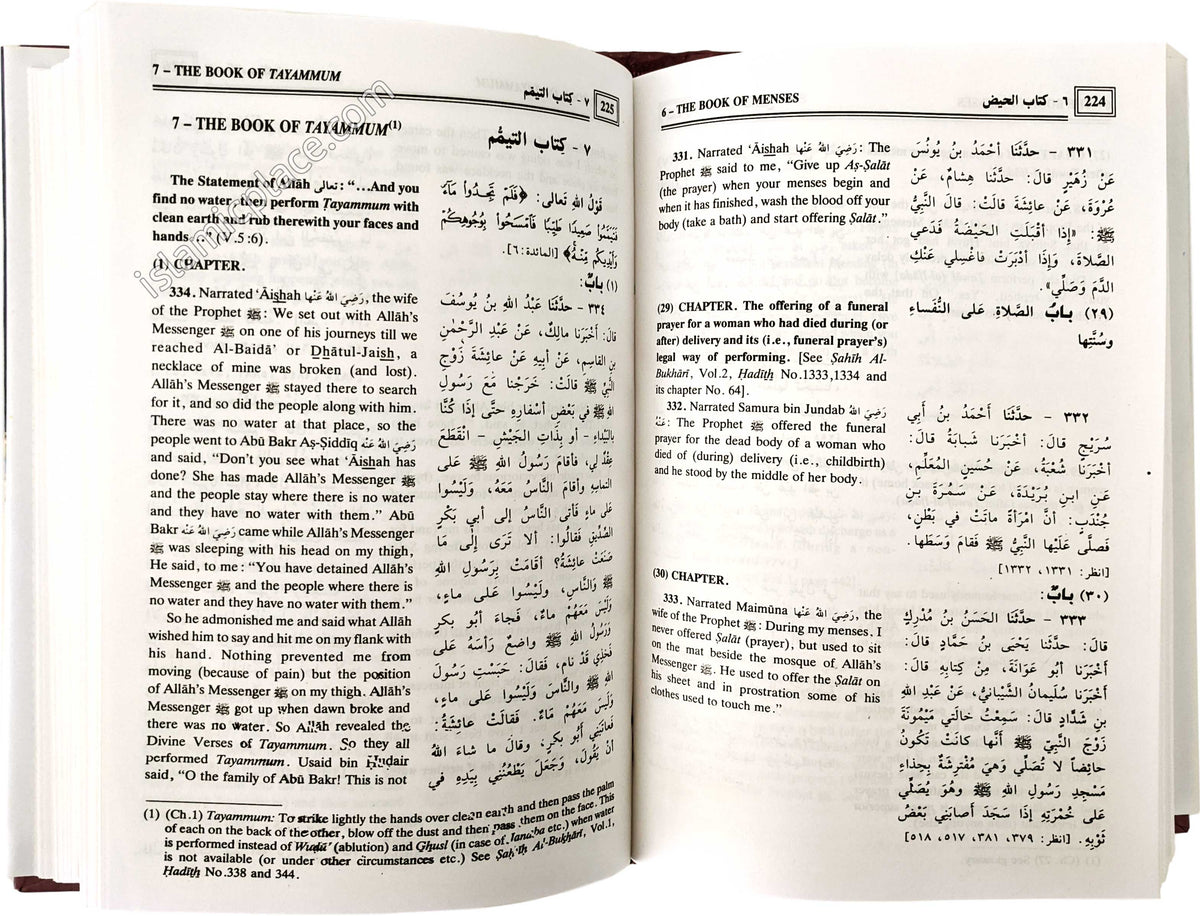 6 – THE BOOK OF MENSES
٦ - كتاب الحيض
224
331. Narrated ‘Āishah رَضِيَ اللهُ عَنْها: The
Prophet ﷺ said to me, “Give up Aṣ-Ṣalāt
(the prayer) when your menses begin and
when it has finished, wash the blood off your
body (take a bath) and start offering Ṣalāt.”
(29) CHAPTER. The offering of a funeral
prayer for a woman who had died during (or
after) delivery and its (i.e., funeral prayer’s)
legal way of performing. [See Ṣaḥīḥ Al-
Bukhārī, Vol.2, Ḥadīth No.1333,1334 and
its chapter No. 64].
332. Narrated Samura bin Jundab رَضِيَ اللهُ
عَنْهُ: The Prophet ﷺ offered the funeral
prayer for the dead body of a woman who
died of (during) delivery (i.e., childbirth)
and he stood by the middle of her body.
(30) CHAPTER.
333. Narrated Maimūna رَضِيَ اللهُ عَنْها, the
wife of the Prophet ﷺ: During my menses. I
never offered Ṣalāt (prayer), but used to sit
on the mat beside the mosque of Allāh’s
Messenger ﷺ. He used to offer the Ṣalāt on
his sheet and in prostration some of his
clothes used to touch me.”
٣٣١ - حدَّثَنَا أحْمَدُ بنُ يُونُسَ
عَنْ زُهَيْرٍ قالَ: حدَّثَنا هِشامٌ، عَنْ
عُرْوَةَ، عَنْ عائِشَةَ قالَتْ: قالَ النَّبِيُّ
ﷺ: «إذَا أقْبَلَتِ الحَيْضَةُ فَدَعي
الصَّلاةَ، وَإذَا أدْبَرَتْ فاغْسِلي عَنْكِ
الدَّمَ وَصَلِّي».
(٢٩) بابُ الصَّلاةِ على النُّفَساءِ
وسُنَّتِها
٣٣٢ - حدَّثَنَا أحْمَدُ بنُ أبي
سُرَيْجٍ قالَ: أخْبَرَنا شَبابَةُ قالَ:
أخْبَرَنا شُعْبَةُ، عَنْ حُسَينٍ المُعَلِّمِ،
عَنِ ابنِ بُرَيْدَةَ، عَنْ سَمُرَةَ بنِ
جُنْدَبٍ: أنَّ امْرَأةً ماتَتْ في بَطْنٍ،
فَصلَّى عَلَيْها النَّبيُّ ﷺ فَقامَ وَسَطَها.
[انظر: ١٣٣١، ١٣٣٢]
(٣٠) بابٌ:
٣٣٣ - حدَّثَنَا الحَسَنُ بنُ مُدْرِكٍ
قالَ: حدَّثَنا يَحْيَى بنُ حَمَّادٍ قالَ:
أخْبَرَنا أبُو عَوَانَةَ، مِنْ كِتابِهِ قالَ:
أخْبَرَنا سُلَيمانُ الشَّيْبانيُّ، عَنْ عَبْدِ اللهِ
بنِ شَدَّادٍ قالَ: سَمِعْتُ خالَتي مَيْمُونَةَ
زَوْجَ النَّبيِّ ﷺ أنَّها كانَتْ تَكُونُ
حائِضاً لا تُصَلِّي وَهيَ مُفْتَرِشَةٌ بِحِذاءِ
مَسْجِدِ رَسُولِ اللهِ ﷺ وهُوَ يُصَلِّي
عَلى خُمْرَتِهِ إذَا سَجَدَ أصَابَني بَعْضُ
ثَوْبِهِ. [انظر: ٣٧٩، ٣٨١، ٥١٧، ٥١٨]
7 – THE BOOK OF TAYAMMUM
٧ - كِتاب التيمّم
225
7 – THE BOOK OF TAYAMMUM(1)
٧ - كتاب التيمُّم
The Statement of Allāh تعالى: “...And you
find no water, then perform Ṭayammum with
clean earth and rub therewith your faces and
hands ..” (V.5:6).
(1) CHAPTER.
334. Narrated ‘Āishah رَضِيَ اللهُ عَنْها, the wife
of the Prophet ﷺ: We set out with Allāh’s
Messenger ﷺ on one of his journeys till we
reached Al-Baidā’ or Dhātul-Jaish, a
necklace of mine was broken (and lost).
Allāh’s Messenger ﷺ stayed there to search
for it, and so did the people along with him.
There was no water at that place, so the
people went to Abū Bakr Aṣ-Ṣiddīq رَضِيَ اللهُ عَنْهُ
and said, “Don’t you see what ‘Āishah has
done? She has made Allāh’s Messenger ﷺ
and the people stay where there is no water
and they have no water with them.” Abū
Bakr رَضِيَ اللهُ عَنْهُ came while Allāh’s Messenger
ﷺ was sleeping with his head on my thigh,
He said, to me: “You have detained Allāh’s
Messenger ﷺ and the people where there is
no water and they have no water with them.”
So he admonished me and said what Allāh
wished him to say and hit me on my flank with
his hand. Nothing prevented me from
moving (because of pain) but the position
of Allāh’s Messenger ﷺ on my thigh. Allāh’s
Messenger ﷺ got up when dawn broke and
there was no water. So Allāh revealed the
Divine Verses of Tayammum. So they all
performed Tayammum. Usaid bin Ḥuḍair
said, “O the family of Abū Bakr! This is not
قَوْلُ اللهِ تَعالى: ﴿فَلَمْ تَجِدُواْ مَآءً
فَتَيَمَّمُواْ صَعِيدًا طَيِّبًا فَٱمْسَحُواْ بِوُجُوهِكُمْ
وَأَيْدِيكُم مِّنْهُ﴾ [المائدة: ٦].
(١) بابٌ:
٣٣٤ - حدَّثَنا عَبْدُ اللهِ بنُ يُوسُفَ
قالَ: أخْبَرَنا مالِكٌ، عَنْ عَبْدِ الرَّحْمٰنِ
بنِ القاسِمِ، عَنْ أبِيهِ عَنْ عائِشَةَ زَوْجِ
النَّبيِّ ﷺ قالَتْ: خَرَجْنا مَعَ رَسُولِ
اللهِ ﷺ في بَعْضِ أسْفارِهِ حتَّى إذَا كُنَّا
بالبَيْداءِ - أو بِذَاتِ الجَيْشِ - انْقَطَعَ
عِقْدٌ لي، فأقامَ رَسُولُ اللهِ ﷺ عَلى
التِماسِهِ وأقامَ النَّاسُ مَعَهُ، وَلَيْسُوا
عَلى ماءٍ فَأتى النَّاسُ إلى أبي بَكْرٍ
الصِّدِّيقِ فَقالُوا: ألا تَرَى إلى ما
صَنَعَتْ عائِشَةُ؟ أقامَتْ بِرَسُولِ اللهِ
ﷺ وَالنَّاسِ، وَلَيْسُوا على ماءٍ،
وَلَيْسَ مَعَهُمْ ماءٌ، فَجاءَ أبُو بكرٍ
وَرَسُولُ اللهِ ﷺ واضِعٌ رَأسَهُ عَلى
فَخِذِي قَدْ نامَ، فَقالَ: حَبَسْتِ رَسُولَ
اللهِ ﷺ والنَّاسَ وَلَيْسُوا عَلى ماءٍ،
وَلَيْسَ مَعَهُمْ ماءٌ. فَقالَتْ عائِشَةُ:
فَعاتَبَني أبُو بكرٍ، وقالَ ما شاءَ اللهُ
أنْ يَقُولَ، وَجَعَلَ يَطْعُنُني بِيَدِهِ في
(1) (Ch.1) Tayammum: To strike lightly the hands over clean earth and then pass the palm
of each on the back of the other, blow off the dust and then pass them on the face. This
is performed instead of Wuḍū’ (ablution) and Ghusl (in case of Janāba etc.) when water
is not available (or under other circumstances etc.) See Ṣaḥīḥ Al-Bukhārī, Vol.1,
Ḥadīth No.338 and 344.
islamicplace.com